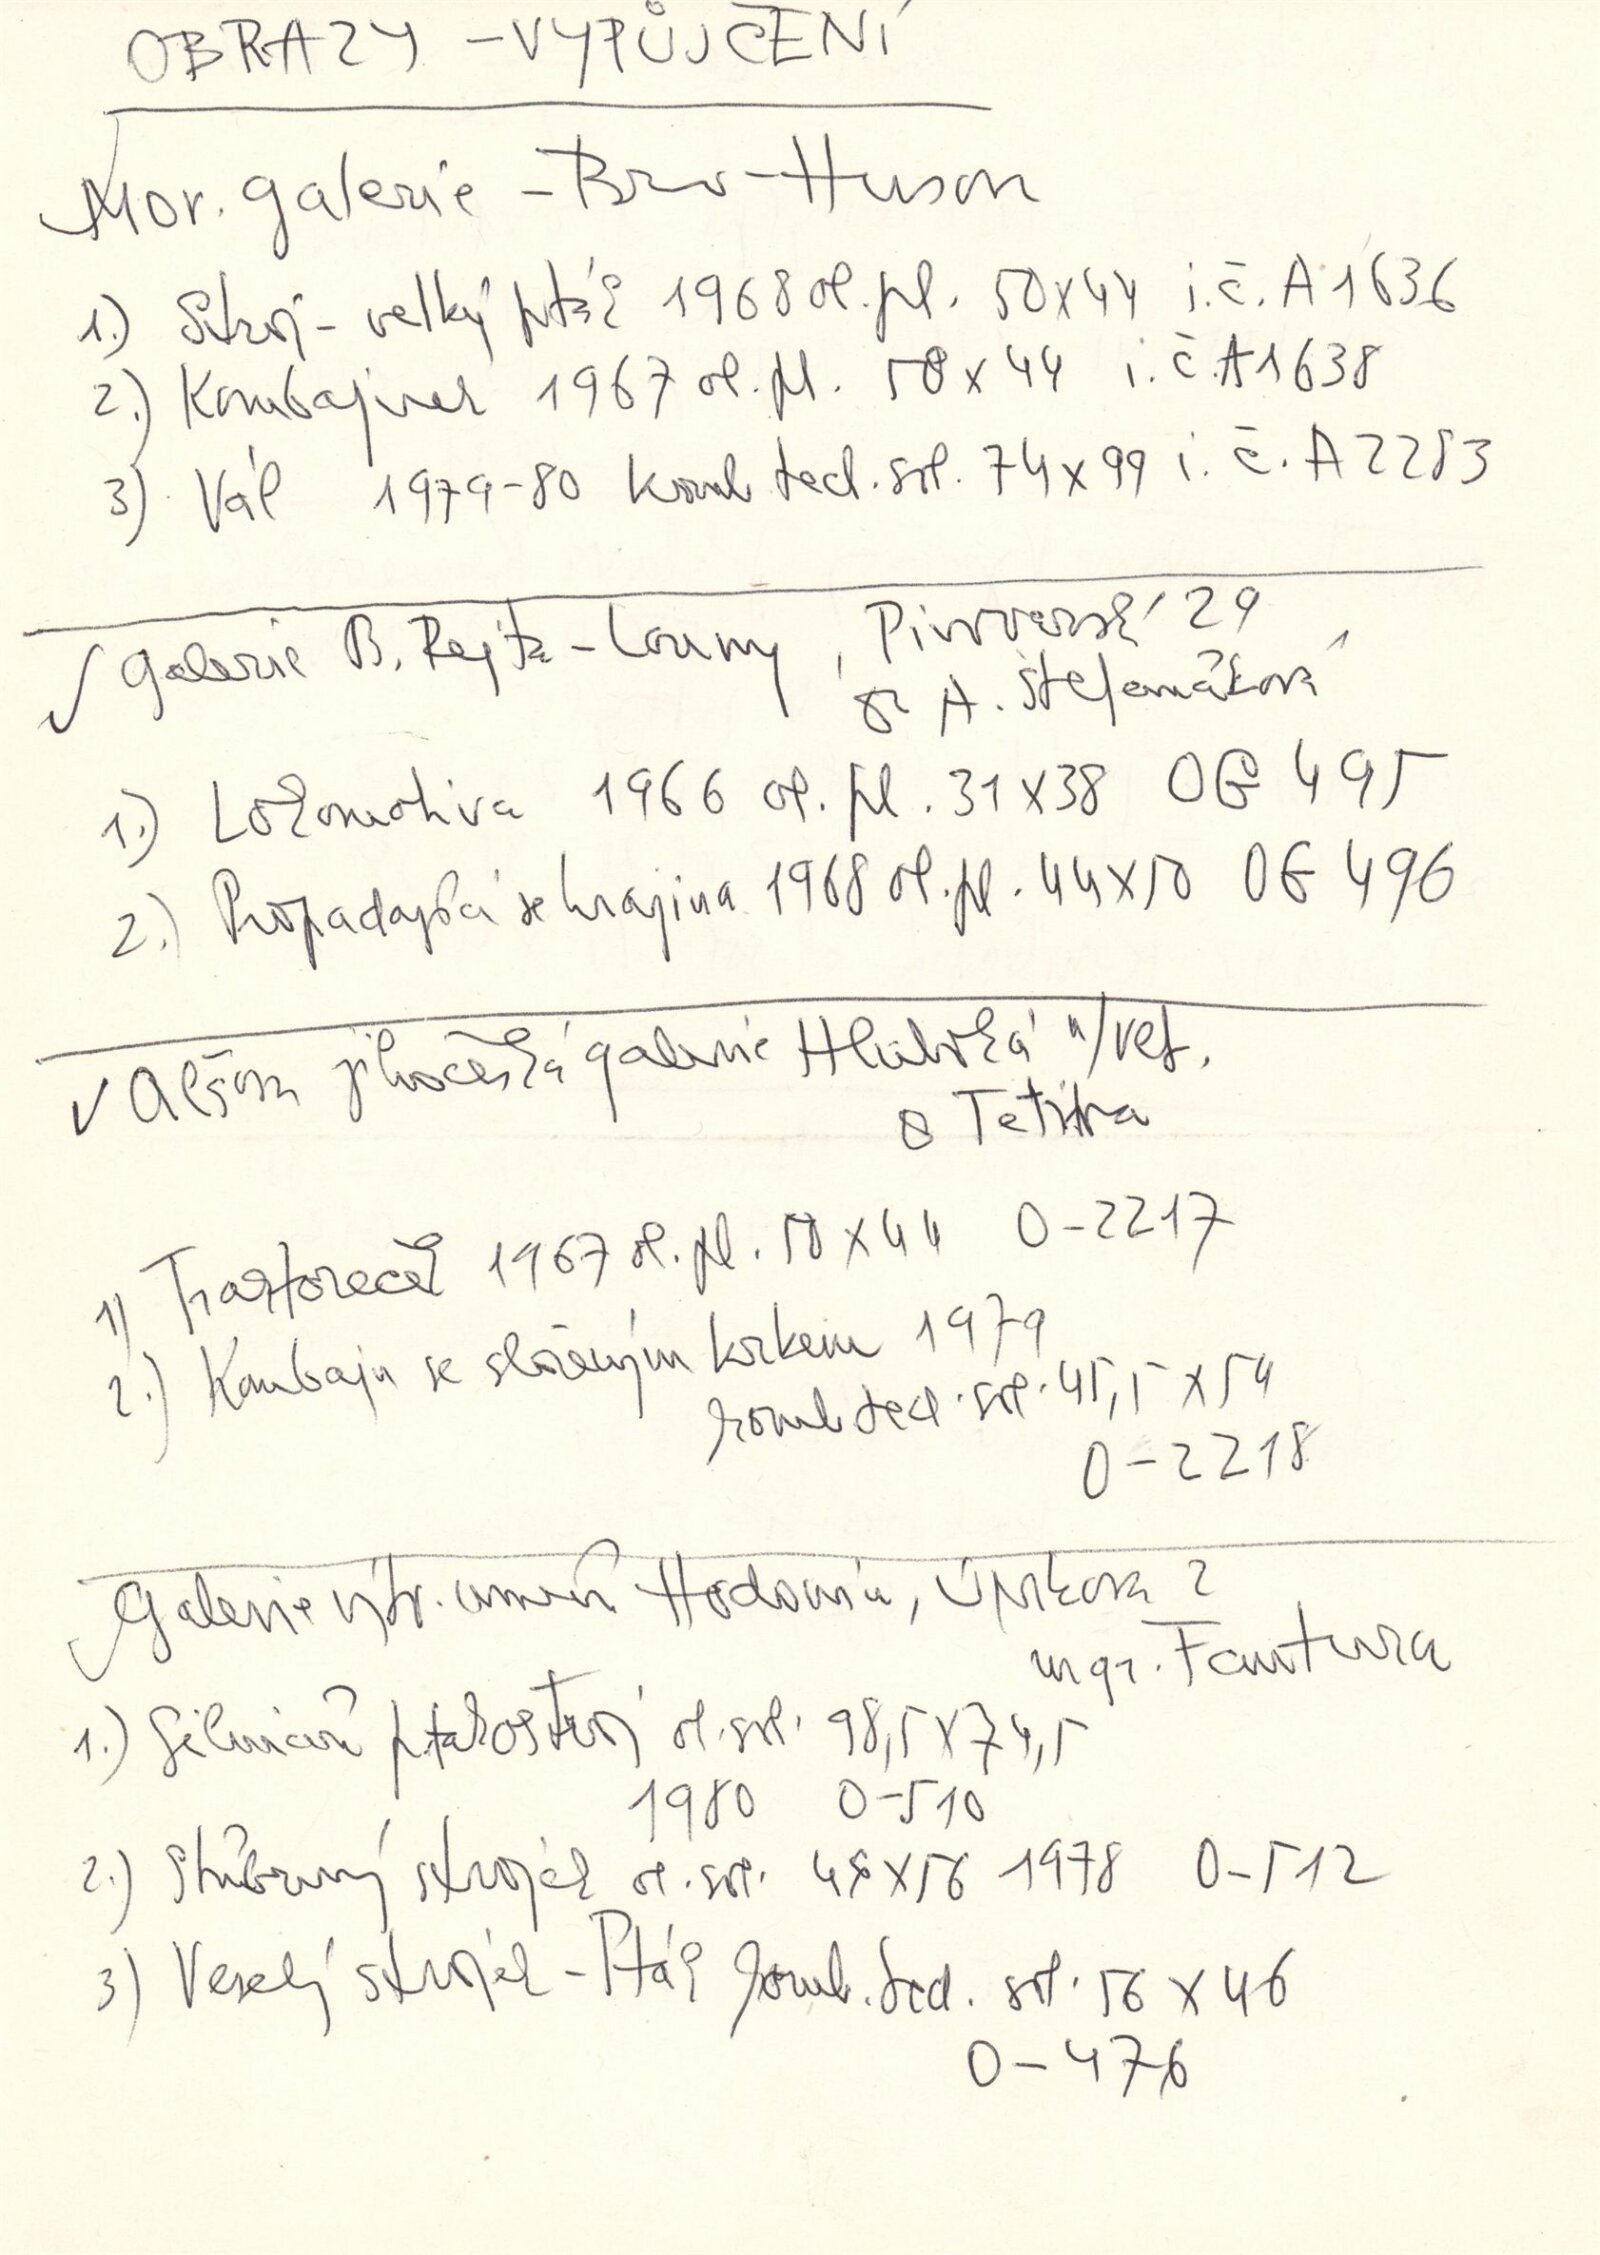 OBRAZY – VYPŮJČENÍ
Mor. galerie – Brno – Husova
1.) Stroj – velký pták 1968 ol. pl. 50x44 i.č. A 1636
2.) Kombajner 1967 ol. pl. 50x44 i.č. A1638
3) Vál 1979-80 komb tech. sol. 74x99 i.č. A 2283
Galerie B. Rejta – Louny, Pivovarská 29
A. Štefančíková
1.) Lokomotiva 1966 ol. pl. 31x38 OG 495
2.) Propadající se krajina 1968 ol. pl. 44x50 OG 496
Alšova jihočeská galerie Hluboká n/Vlt.
Tetiva
1) Traktoreček 1967 ol. pl. 50x44 O-2217
2.) Kombajn se složeným krkem 1979
komb tech. sol. 45,5x54
O-2218
Galerie výtv. umění Hodonín, Úprkova 2
mgr. Fantura
1.) Silniční ptakostroj ol. sol. 98,5x74,5
1980 O-510
2.) Stříbrný strojek ol. sol. 48x56 1978 O-512
3) Veselý strojek – Pták komb. tech. sol. 56x46
O-476